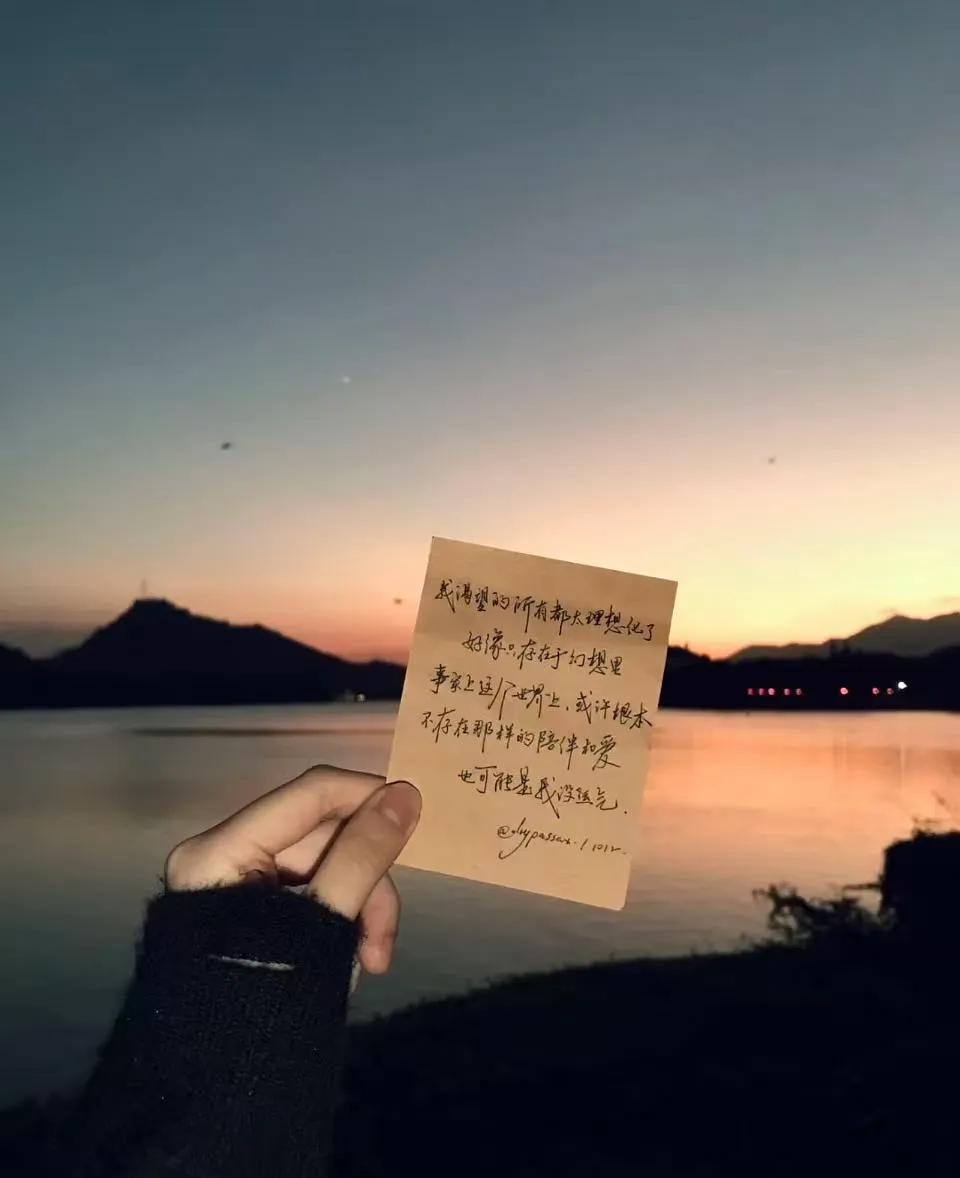 我渴望的所有都太理想化了
好像只存在于幻想里
事实上这个世界上,或许根本
不存在那样的陪伴和爱
也可能是我没运气.